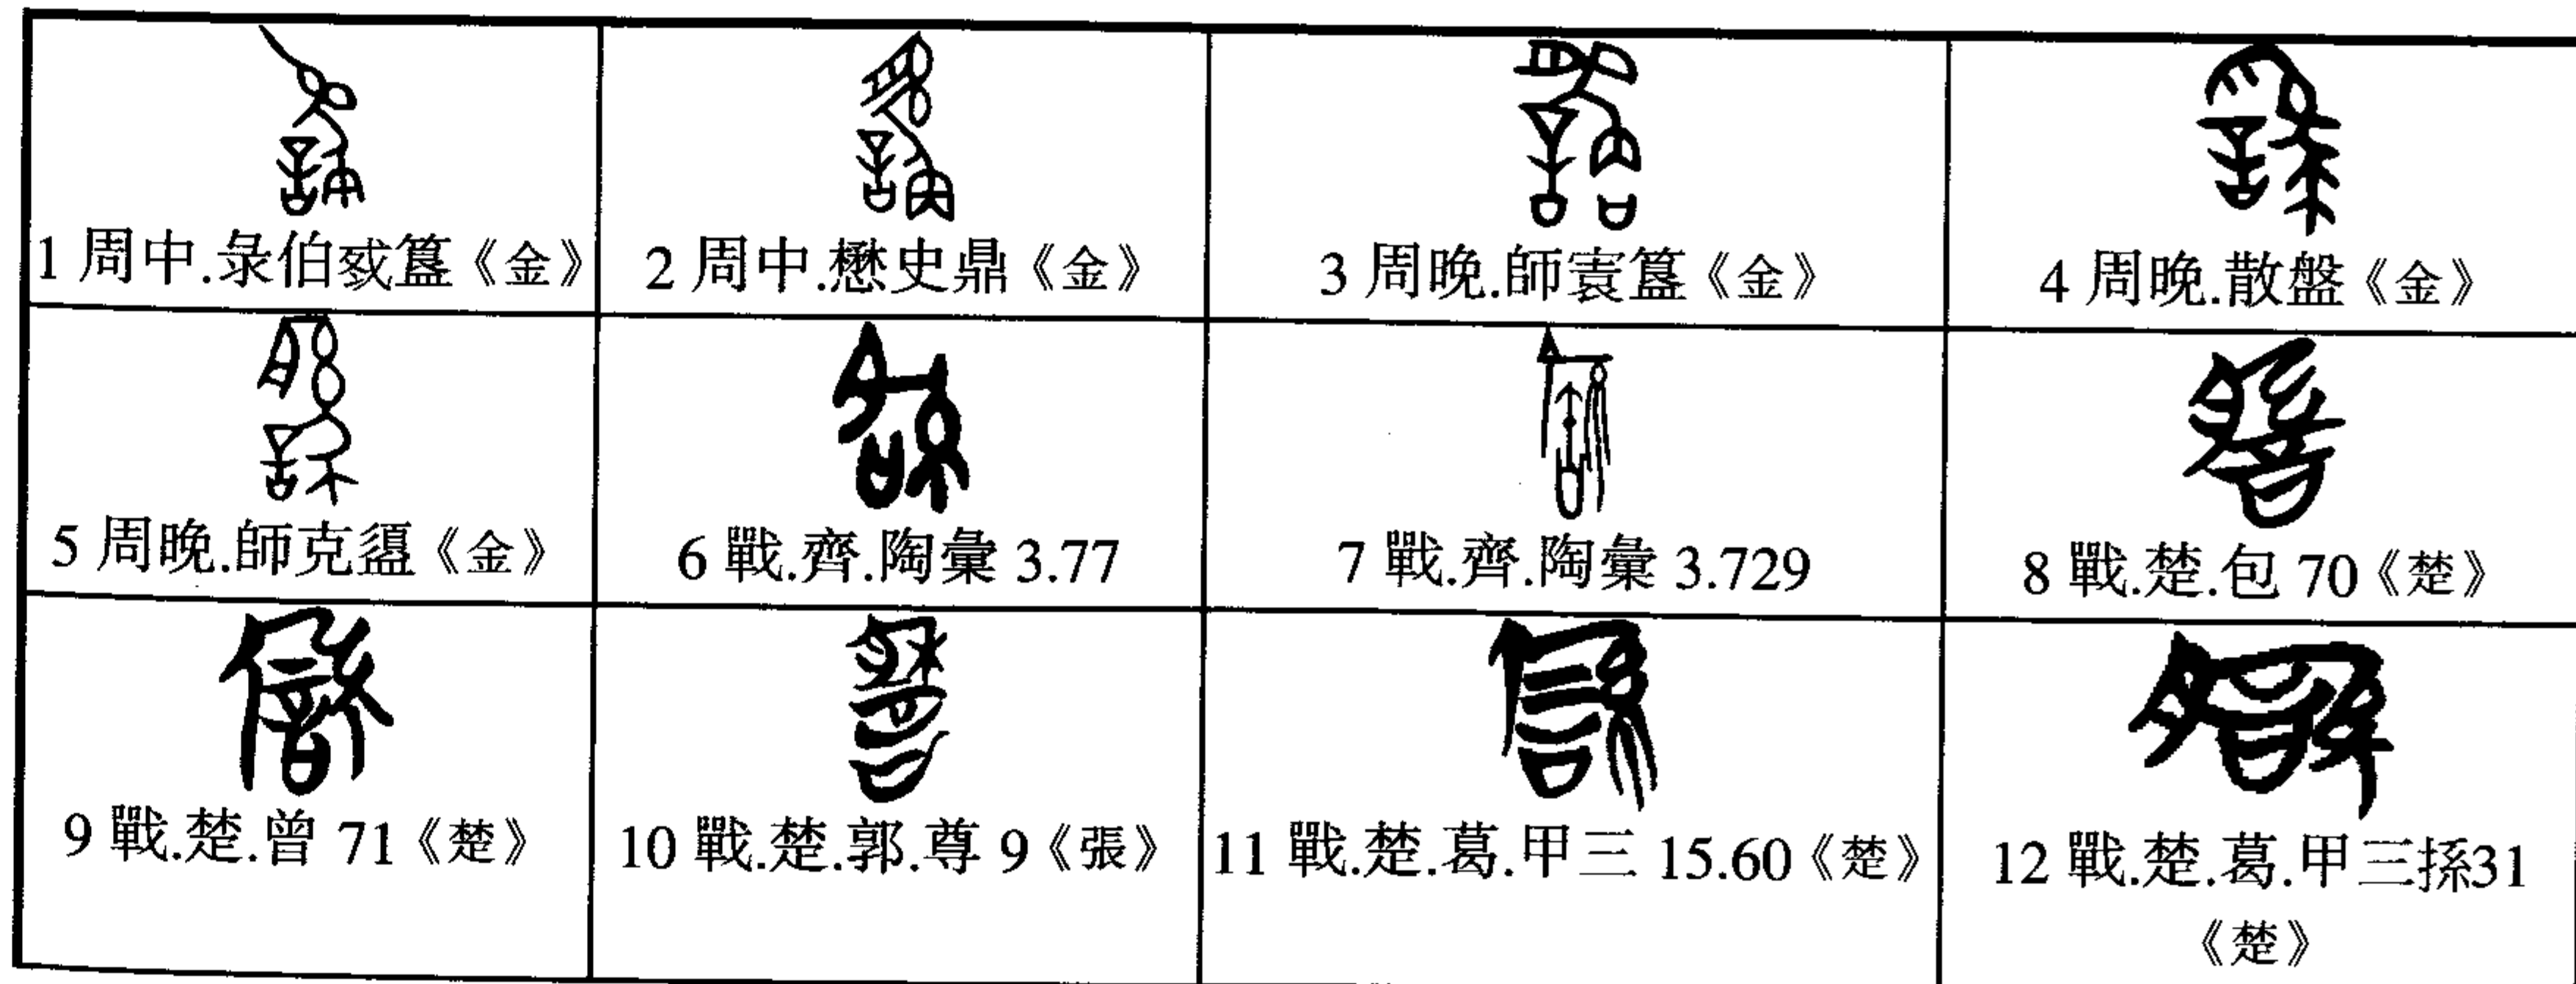 1 周中.彔伯㦰簋《金》
2 周中.懋史鼎《金》
3 周晚.師寰簋《金》
4 周晚.散盤《金》
5 周晚.師克盨《金》
6 戰.齊.陶彙 3.77
7 戰.齊.陶彙 3.729
8 戰.楚.包 70《楚》
9 戰.楚.曾 71《楚》
10 戰.楚.郭.尊 9《張》
11 戰.楚.葛.甲三 15.60《楚》
12 戰.楚.葛.甲三搎31
《楚》